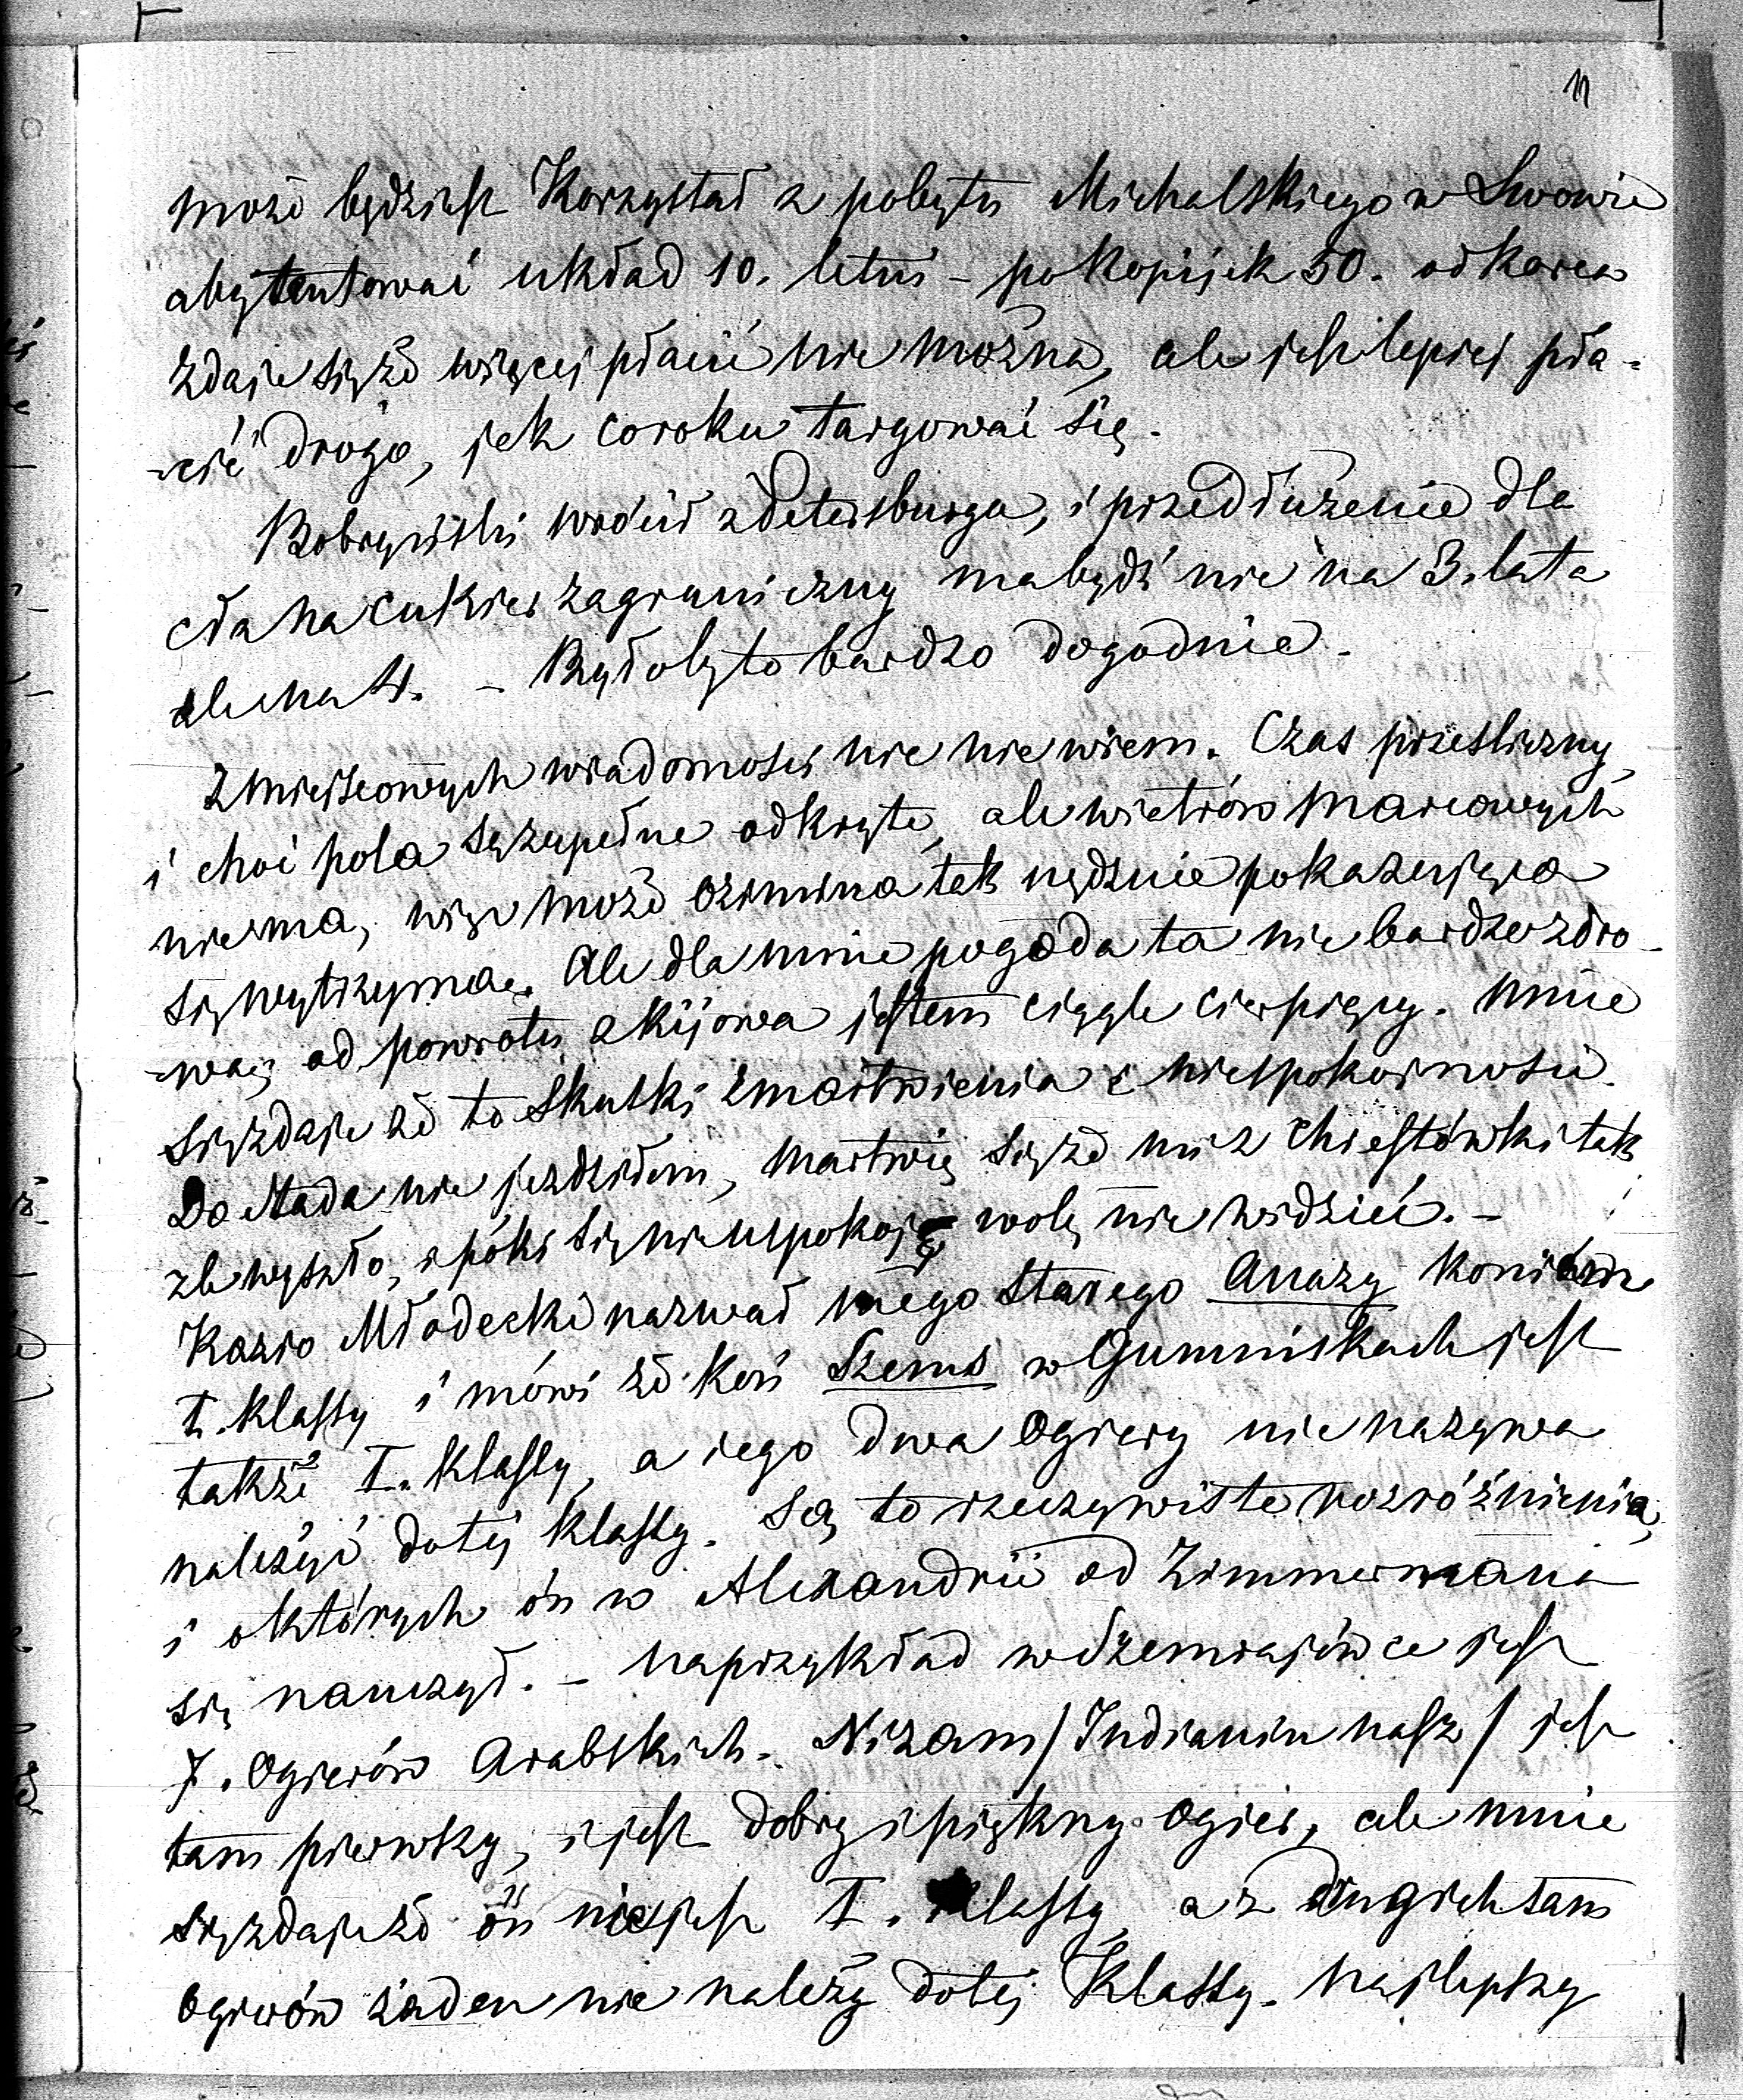 11
może będziesz Korzystał z pobytu Michalskiego w Lwowie
aby tentować układ 10. letni – po Kopijek 50. od Korca
zdaje się że więcej płacić nie można, ale jest lepiej pła-
-cić drogo, jak co roku targować się.
Bobryński wrócił z Petersburga, i przedłużenie dla
cła na cukier zagraniczny ma bydź nie na 3. lata
ale na 4. – Byłoby to bardzo dogodnie.
Z miejscowych wiadomości nic nie wiem. Czas prześliczny,
i choć pola są zupełne odkryte, ale wietrów marcowych
nie ma, więc może ozimina tak nędznie pokazująca
się wytrzyma. Ale dla mnie pogoda ta nie bardzo zdro-
-wa, od powrotu z Kijowa jestem ciągle cierpiący. Mnie
się zdaje że to skutki zmartwienia i niespokojności.
Do stada nie jezdziłem, martwię się że mi z Chrestówki tak
źle wyszło, i póki się nie uspokoję wolę nie widzieć. –
Kazio Młodecki nazwał mego starego Anazy koniem
I. klassy i mówi że koń Szems w Gumniskach jest
także I. klassy, a jego dwa Ogiery nie nazywa
należyć do téj klassy. Są to rzeczywiste rozróżnienia,
i o których ón w Alexandrii od Zimmermana
się nauczył. – Naprzykład w Szemrajówce jest
7. Ogierów Arabskich. Nizam / Indianin nasz / jest
tam pierwszy, i jest dobry i piękny Ogier, ale mnie
się zdaje że ón nie jest I. klassy, a z drugich tam
Ogierów żaden nie należy do téj Klassy. Najlepszy